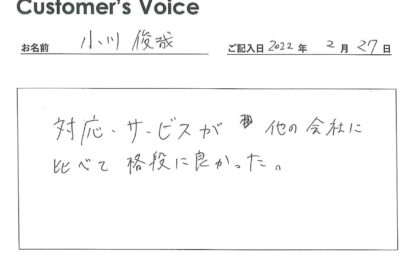 Customer's Voice
お名前 小川 俊哉 ご記入日 2022 年 2 月 27 日
対応・サービスが 他の会社に
比べて 格段に良かった。